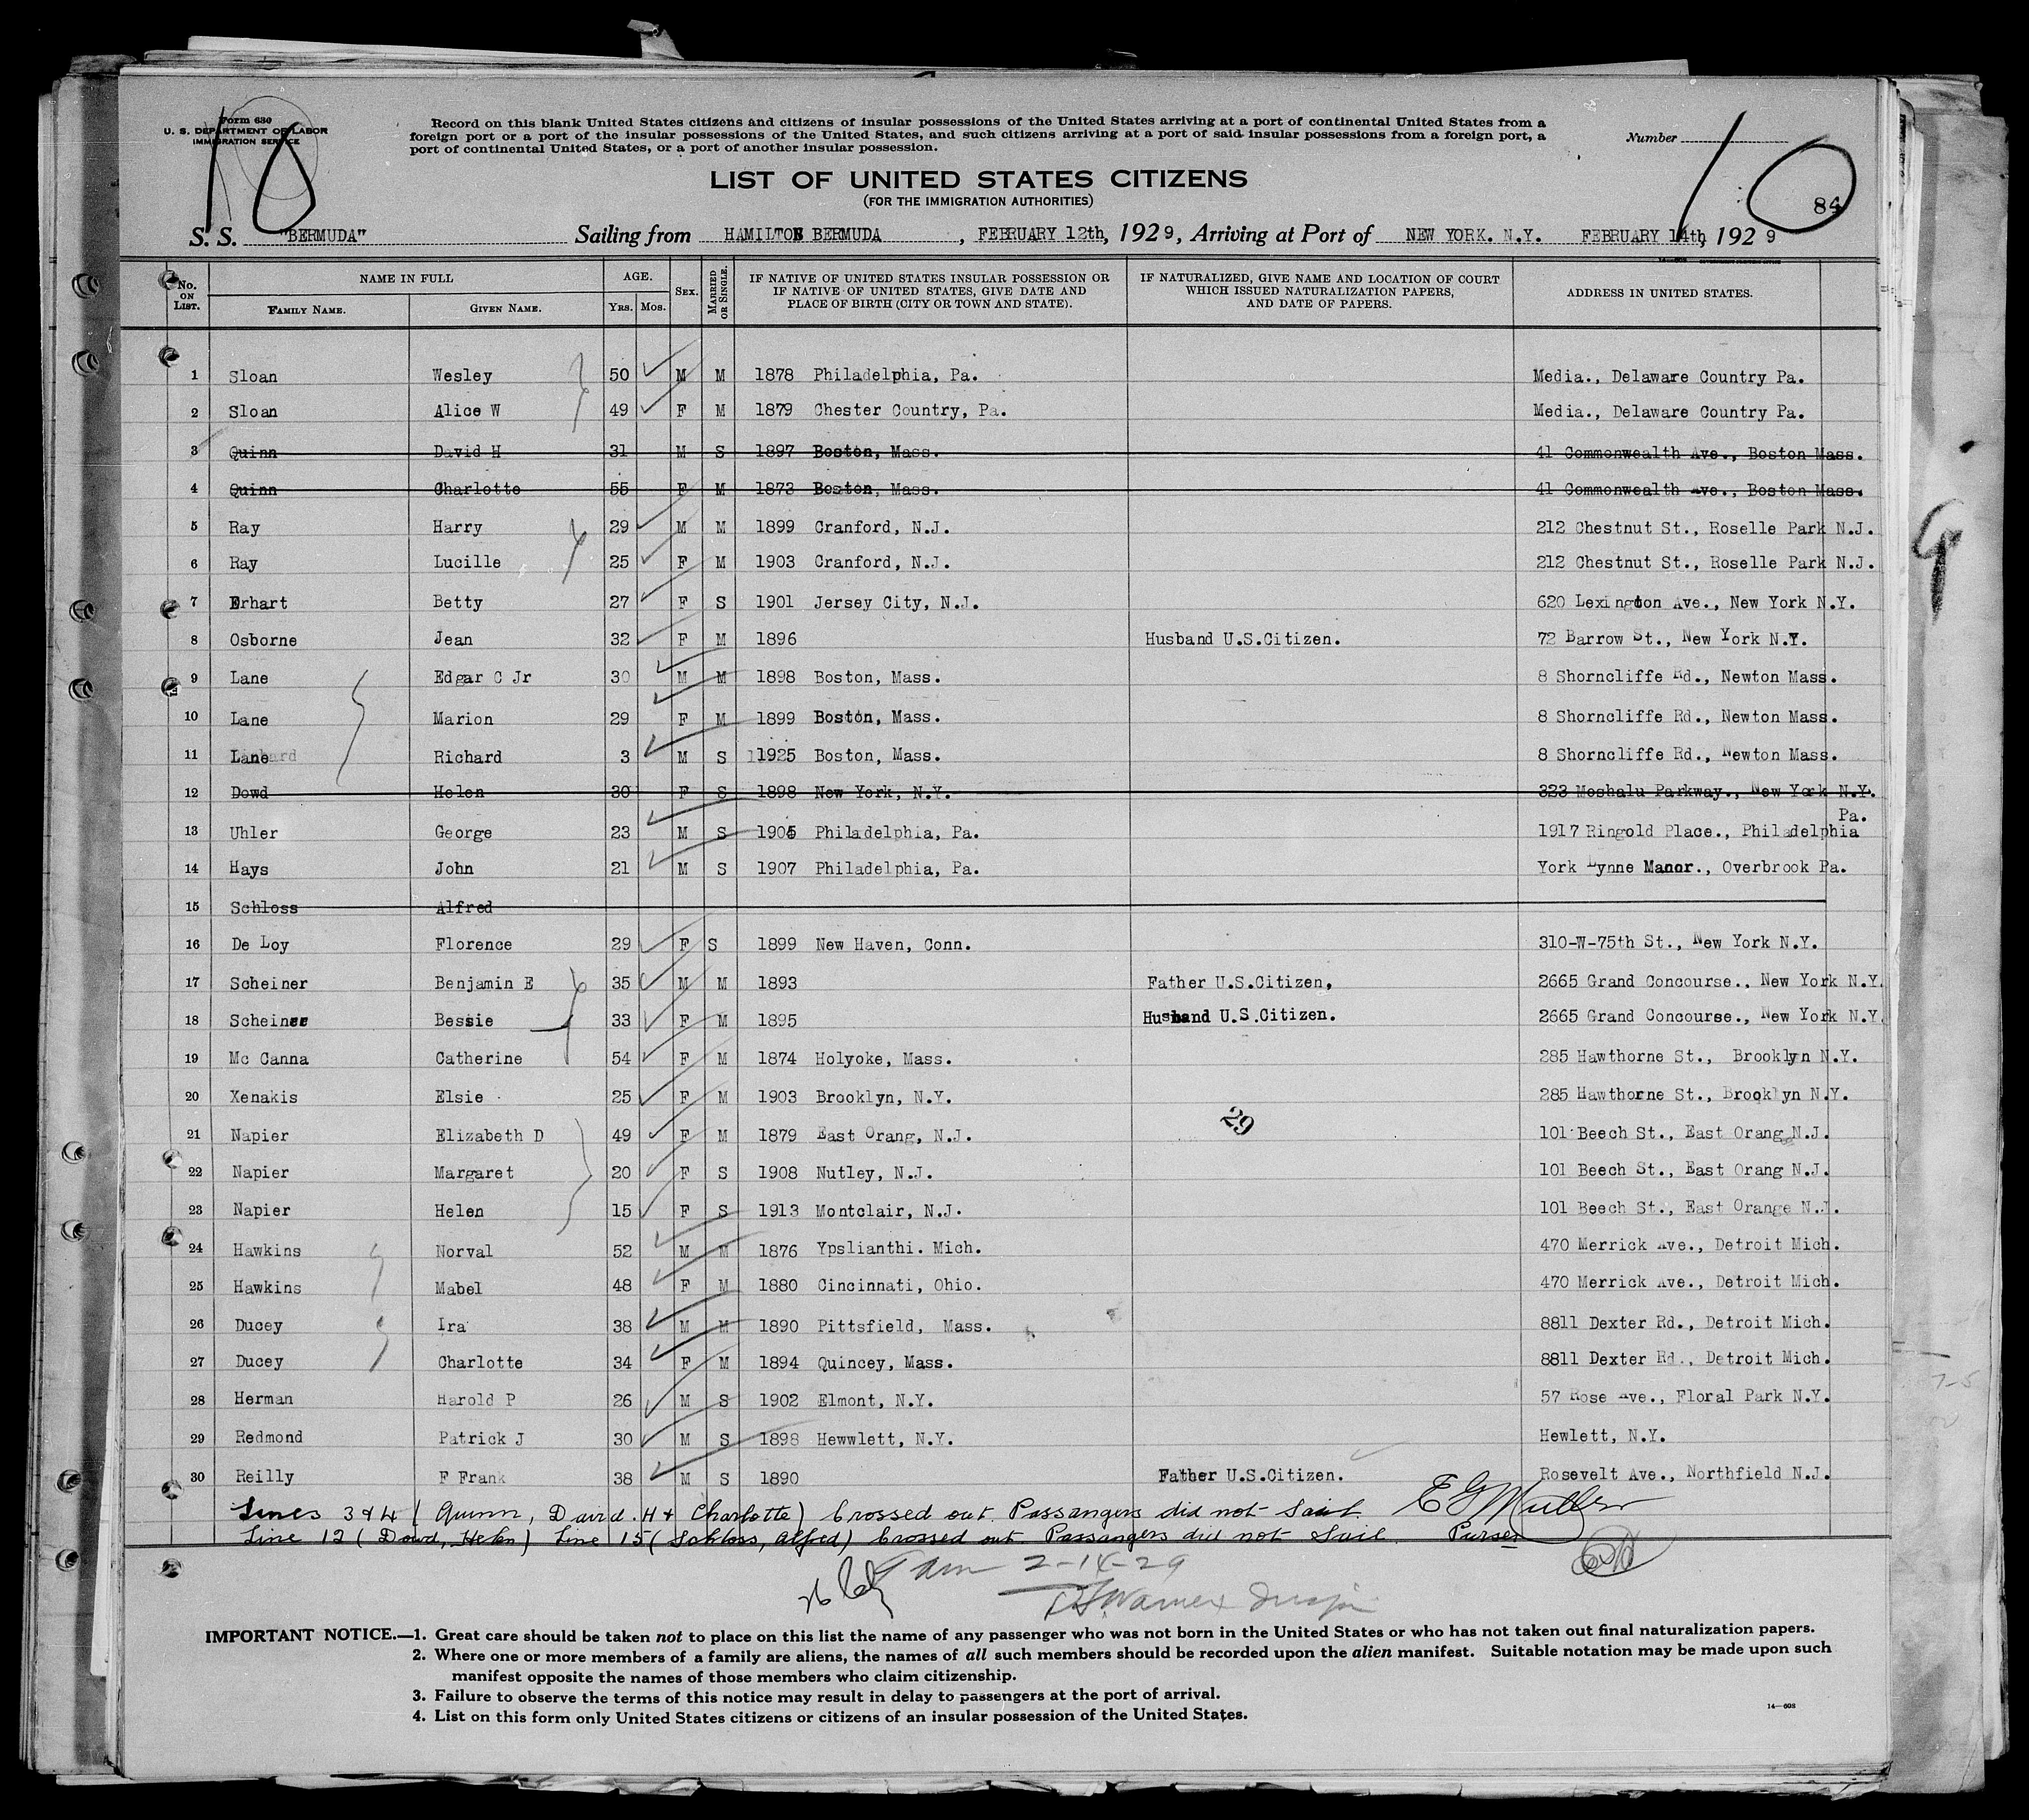 Form 630
U. S. DEPARTMENT OF LABOR
IMMIGRATION SERVICE
10
Record on this blank United States citizens and citizens of insular possessions of the United States arriving at a port of continental United States from a
foreign port or a port of the insular possessions of the United States, and such citizens arriving at a port of said insular possessions from a foreign port, a
port of continental United States, or a port of another insular possession.
Number
10
84
LIST OF UNITED STATES CITIZENS
(FOR THE IMMIGRATION AUTHORITIES)
S. S. "BERMUDA" Sailing from HAMILTON BERMUDA, FEBRUARY 12th, 1929, Arriving at Port of NEW YORK. N.Y. FEBRUARY 14th, 1929
No. ON LIST. NAME IN FULL FAMILY NAME. GIVEN NAME. AGE. YRS. MOS. SEX. MARRIED OR SINGLE. IF NATIVE OF UNITED STATES INSULAR POSSESSION OR IF NATIVE OF UNITED STATES, GIVE DATE AND PLACE OF BIRTH (CITY OR TOWN AND STATE). IF NATURALIZED, GIVE NAME AND LOCATION OF COURT WHICH ISSUED NATURALIZATION PAPERS, AND DATE OF PAPERS. ADDRESS IN UNITED STATES.
1 Sloan Wesley 50 M M 1878 Philadelphia, Pa. Media., Delaware Country Pa.
2 Sloan Alice W 49 F M 1879 Chester Country, Pa. Media., Delaware Country Pa.
3 Quinn David H 31 M S 1897 Boston, Mass. 41 Commonwealth Ave., Boston Mass.
4 Quinn Charlotte 55 F M 1873 Boston, Mass. 41 Commonwealth Ave., Boston Mass.
5 Ray Harry 29 M M 1899 Cranford, N.J. 212 Chestnut St., Roselle Park N.J.
6 Ray Lucille 25 F M 1903 Cranford, N.J. 212 Chestnut St., Roselle Park N.J.
7 Erhart Betty 27 F S 1901 Jersey City, N.J. 620 Lexington Ave., New York N.Y.
8 Osborne Jean 32 F M 1896 Husband U.S.Citizen. 72 Barrow St., New York N.Y.
9 Lane Edgar C Jr 30 M M 1898 Boston, Mass. 8 Shorncliffe Rd., Newton Mass.
10 Lane Marion 29 F M 1899 Boston, Mass. 8 Shorncliffe Rd., Newton Mass.
11 Lane Richard 3 M S 1925 Boston, Mass. 8 Shorncliffe Rd., Newton Mass.
12 Dowd Helen 30 F S 1898 New York, N.Y. 323 Moshalu Parkway., New York N.Y.
13 Uhler George 23 M S 1905 Philadelphia, Pa. 1917 Ringold Place., Philadelphia Pa.
14 Hays John 21 M S 1907 Philadelphia, Pa. York Lynne Manor., Overbrook Pa.
15 Schloss Alfred
16 De Loy Florence 29 F S 1899 New Haven, Conn. 310-W-75th St., New York N.Y.
17 Scheiner Benjamin E 35 M M 1893 Father U.S.Citizen, 2665 Grand Concourse., New York N.Y.
18 Scheiner Bessie 33 F M 1895 Husband U.S.Citizen. 2665 Grand Concourse., New York N.Y.
19 Mc Canna Catherine 54 F M 1874 Holyoke, Mass. 285 Hawthorne St., Brooklyn N.Y.
20 Xenakis Elsie 25 F M 1903 Brooklyn, N.Y. 285 Hawthorne St., Brooklyn N.Y.
29
21 Napier Elizabeth D 49 F M 1879 East Orang, N.J. 101 Beech St., East Orang N.J.
22 Napier Margaret 20 F S 1908 Nutley, N.J. 101 Beech St., East Orang N.J.
23 Napier Helen 15 F S 1913 Montclair, N.J. 101 Beech St., East Orange N.J.
24 Hawkins Norval 52 M M 1876 Ypslianthi. Mich. 470 Merrick Ave., Detroit Mich.
25 Hawkins Mabel 48 F M 1880 Cincinnati, Ohio. 470 Merrick Ave., Detroit Mich.
26 Ducey Ira 38 M M 1890 Pittsfield, Mass. 8811 Dexter Rd., Detroit Mich.
27 Ducey Charlotte 34 F M 1894 Quincey, Mass. 8811 Dexter Rd., Detroit Mich.
28 Herman Harold P 26 M S 1902 Elmont, N.Y. 57 Rose Ave., Floral Park N.Y.
29 Redmond Patrick J 30 M S 1898 Hewwlett, N.Y. Hewlett, N.Y.
30 Reilly F Frank 38 M S 1890 Father U.S.Citizen. Rosevelt Ave., Northfield N.J.
Lines 3 & 4 (Quinn, David. H & Charlotte) Crossed out. Passangers did not Sail.
Line 12 (Dowd, Helen) Line 15 (Schloss, Alfred) Crossed out Passangers did not Sail. Purser
2-14-29
IMPORTANT NOTICE.—1. Great care should be taken not to place on this list the name of any passenger who was not born in the United States or who has not taken out final naturalization papers.
2. Where one or more members of a family are aliens, the names of all such members should be recorded upon the alien manifest. Suitable notation may be made upon such
manifest opposite the names of those members who claim citizenship.
3. Failure to observe the terms of this notice may result in delay to passengers at the port of arrival.
4. List on this form only United States citizens or citizens of an insular possession of the United States.
14—608